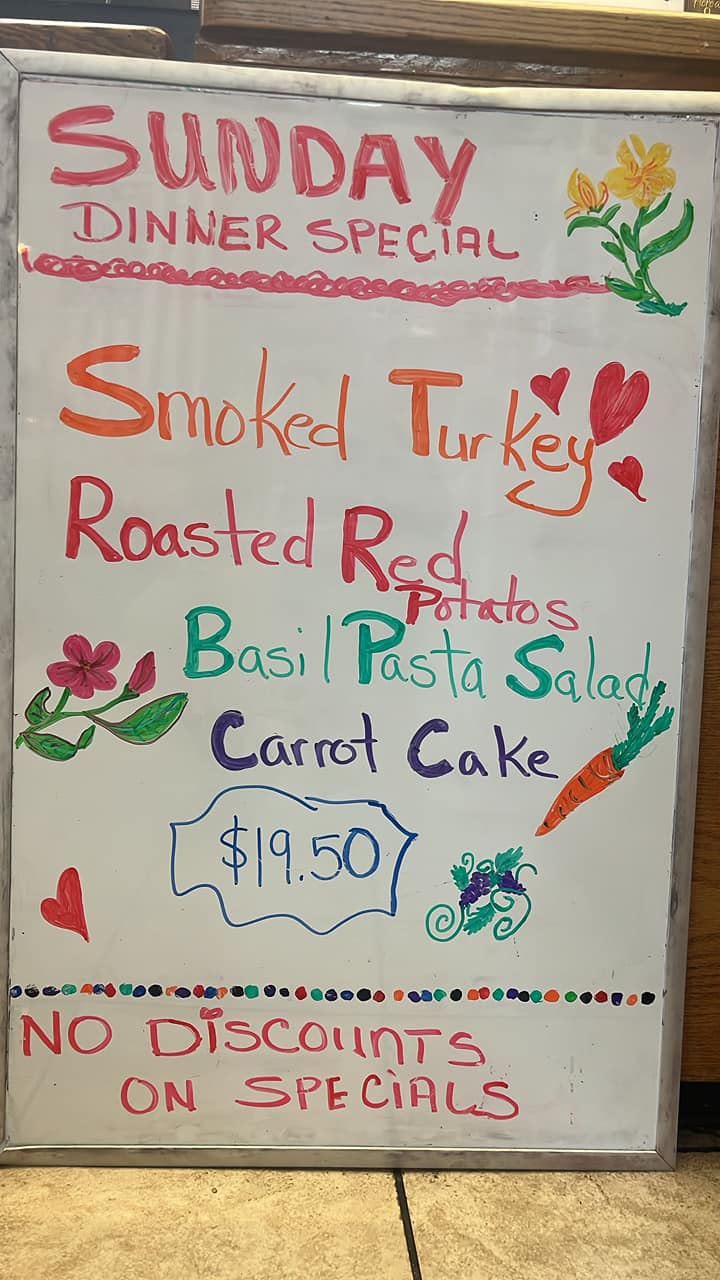 SUNDAY
DINNER SPECIAL
Smoked Turkey
Roasted Red
Potatos
Basil Pasta Salad
Carrot Cake
$19.50
NO DISCOUNTS
ON SPECIALS